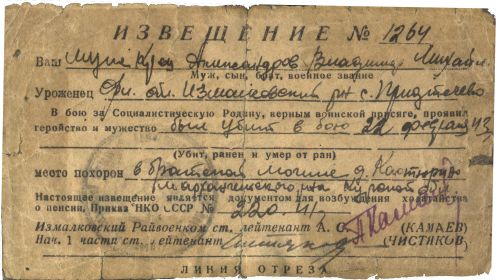 ИЗВЕЩЕНИЕ № 1264
Ваш муж Кр-ц Александров Владимир Михайл.
Муж, сын, брат, военное звание
Уроженец Ор. обл. Измалковский р-н с.
В бою за Социалистическую Родину, верным воинской присяге, проявив
геройство и мужество был убит в бою 22 февраля 43 г.
(Убит, ранен и умер от ран)
место похорон в братской могиле д.
р-на Курской обл.
Настоящее извещение является документом для возбуждения ходатайства
о пенсии. Приказ НКО СССР № 220-41 г.
Измалковский Райвоенком ст. лейтенант А. О. (КАМАЕВ)
Нач. 1 части ст. лейтенант (ЧИСТЯКОВ)
ЛИНИЯ ОТРЕЗА